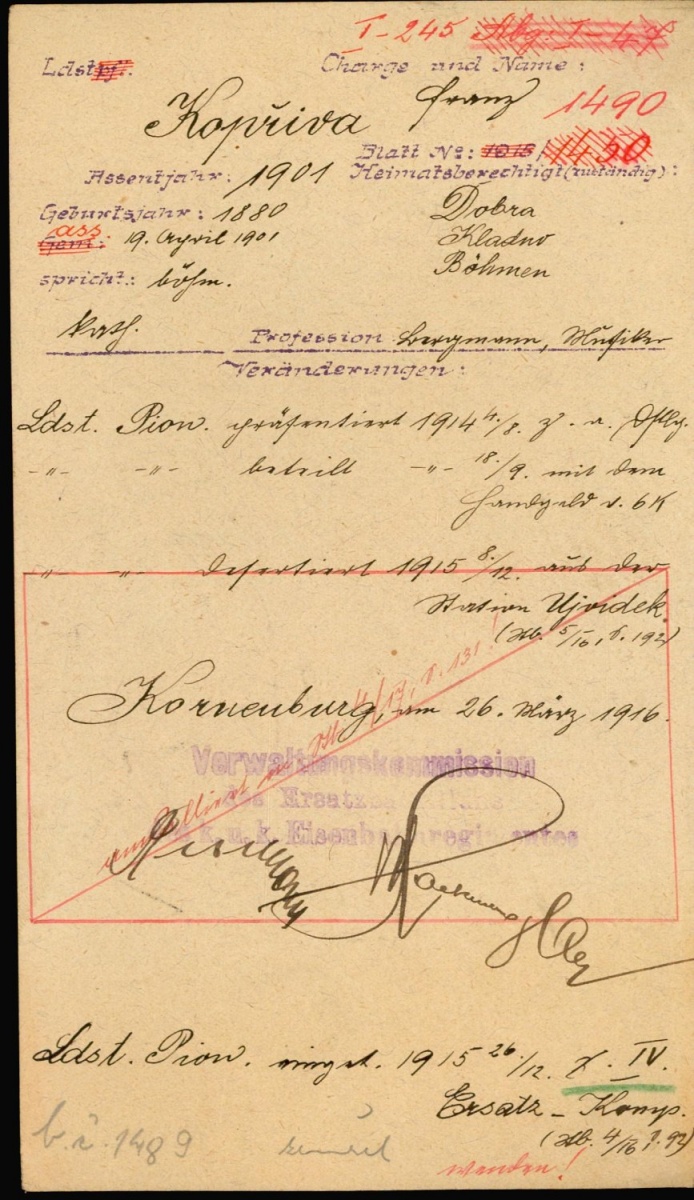 I-245
Ldst
Charge und Name:
Kopřiva Franz 1490
Blatt No:
Assentjahr: 1901 Heimatsberechtigt (zuständig):
Geburtsjahr: 1880 Dobra
ass
19. April 1901 Kladno
Böhmen
spricht: böhm.
kath. Profession Bergmann, Musiker
Veränderungen:
Ldst. Pion. präsentiert 1914 4./8. z. a. Dstlg.
-"- -"- beteilt -"- 18./9. mit dem
Handgeld v. 6K
-"- -"- desertiert 1915 8./12. aus der
Station Ujvidek.
(Stb. 5/16, S. 192)
Kornenburg, am 26. März 1916.
Verwaltungskommission
des Ersatz
k.u.k. Eisenbahnregimentes
Ldst. Pion. einget. 1915 26./12. z. IV.
Ersatz-Komp.
(Stb. 4/16 S. 92)
b.i. 1489
wenden!